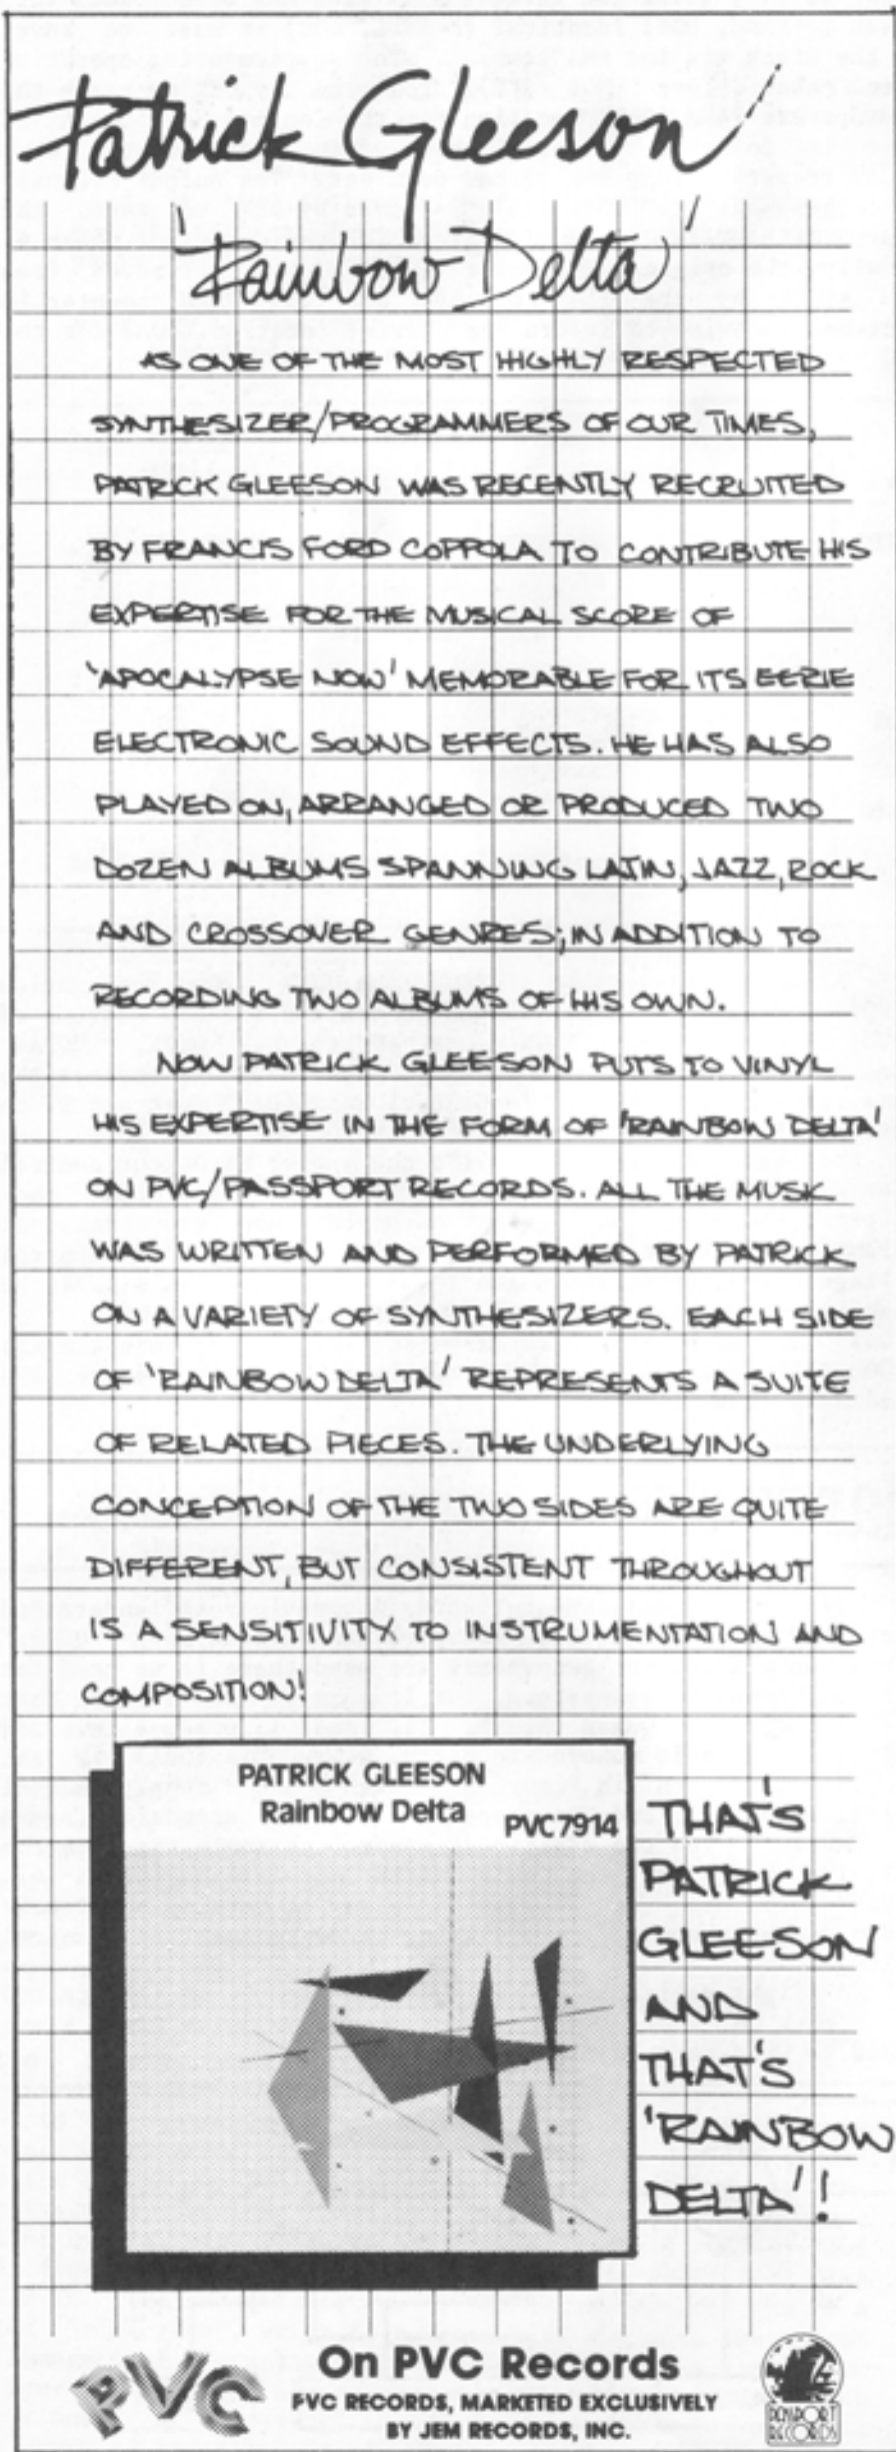 Patrick Gleeson
'Rainbow Delta'
AS ONE OF THE MOST HIGHLY RESPECTED
SYNTHESIZER/PROGRAMMERS OF OUR TIMES,
PATRICK GLEESON WAS RECENTLY RECRUITED
BY FRANCIS FORD COPPOLA TO CONTRIBUTE HIS
EXPERTISE FOR THE MUSICAL SCORE OF
'APOCALYPSE NOW' MEMORABLE FOR ITS EERIE
ELECTRONIC SOUND EFFECTS. HE HAS ALSO
PLAYED ON, ARRANGED OR PRODUCED TWO
DOZEN ALBUMS SPANNING LATIN, JAZZ, ROCK
AND CROSSOVER GENRES; IN ADDITION TO
RECORDING TWO ALBUMS OF HIS OWN.
NOW PATRICK GLEESON PUTS TO VINYL
HIS EXPERTISE IN THE FORM OF 'RAINBOW DELTA'
ON PVC/PASSPORT RECORDS. ALL THE MUSIC
WAS WRITTEN AND PERFORMED BY PATRICK
ON A VARIETY OF SYNTHESIZERS. EACH SIDE
OF 'RAINBOW DELTA' REPRESENTS A SUITE
OF RELATED PIECES. THE UNDERLYING
CONCEPTION OF THE TWO SIDES ARE QUITE
DIFFERENT, BUT CONSISTENT THROUGHOUT
IS A SENSITIVITY TO INSTRUMENTATION AND
COMPOSITION!
PATRICK GLEESON
Rainbow Delta
PVC 7914
THAT'S
PATRICK
GLEESON
AND
THAT'S
'RAINBOW
DELTA'!
PVC
On PVC Records
PVC RECORDS, MARKETED EXCLUSIVELY
BY JEM RECORDS, INC.
PASSPORT
RECORDS